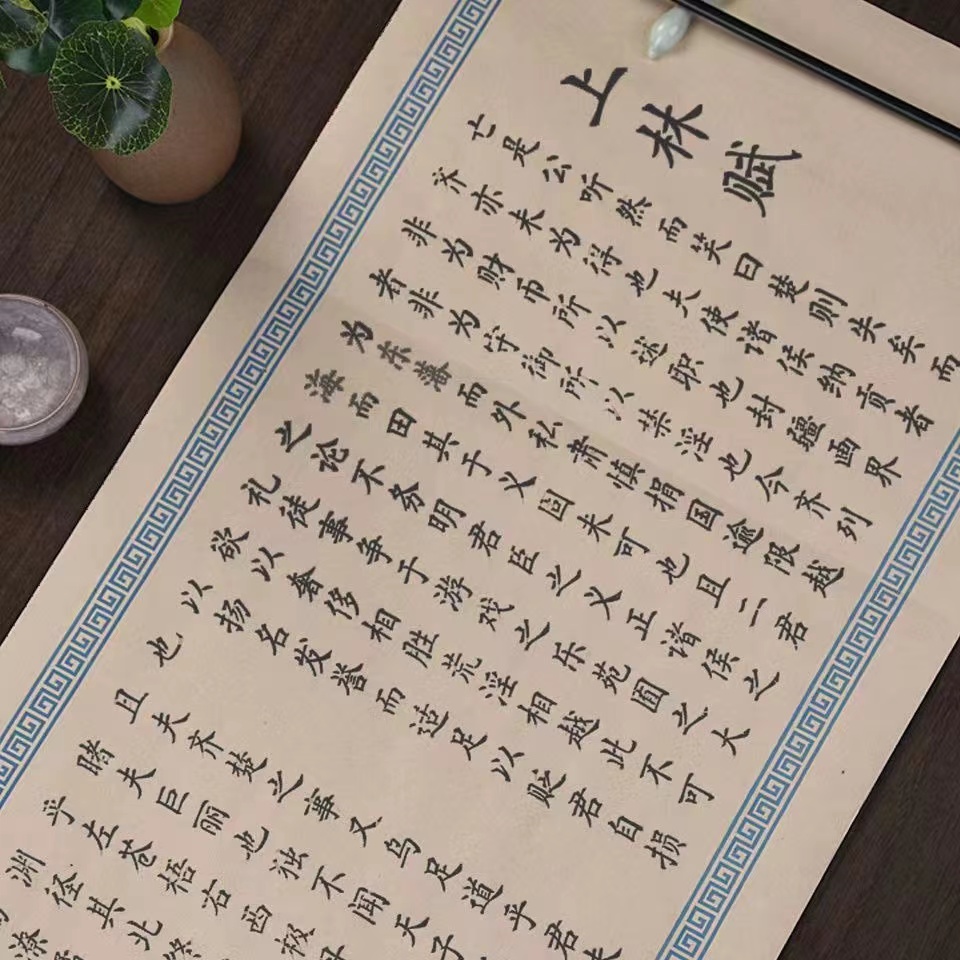 上林赋
亡是公听然而笑曰楚则失矣而
齐亦未为得也夫使诸侯纳贡者
非为财币所以述职也封疆画界
者非为守御所以禁淫也今齐列
为东藩而外私肃慎捐国逾限越
海而田其于义固未可也且二君
之论不务明君臣之义正诸侯之
礼徒事争于游戏之乐苑囿之大
欲以奢侈相胜荒淫相越此不可
以扬名发誉而适足以贬君自损
也
且夫齐楚之事又乌足道乎君未
睹夫巨丽也独不闻天子
乎左苍梧右西极
渊径其北终
潦